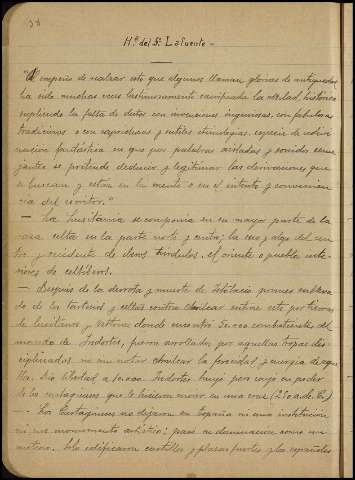 H.ª del Sr. Lafuente.-
empeño de realzar esto que algunos llaman glorias de antiguedad
ha sido muchas veces lastimosamente sacrificada la verdad histórica
supliendo la falta de datos con invenciones ingeniosas, con fabulosas
tradiciones o con caprichosas y sutiles etimologias, especie de adivi-
nacion fantástica en que por palabras aisladas y sonidos seme
jantes se pretende deducir y legitimar las derivaciones que
se buscan y estan en la mente o en el intento y convenien
cia del escritor."
— La Lusitania se componia en su mayor parte de la
raza celta en la parte norte y centro; la
y occidente de
de celtiberos.
— Despues de la derrota y muerte de Istolacio primer
de de los tartesios y celtas contra Amilcar entra este por tierras
de lusitanos y vetones donde encontro 50.000 combatientes del
mando de Indortes, fueron arrollados por aquellas tropas dis-
ciplinadas no sin notar Amilcar la ferocidad y energia de aque
llos. Dio libertad a 10.000. Indortes huyó pero cayo en poder
de los cartagineses que le hicieron morir en una cruz
— Los Cartagineses no dejaron en España ni una institucion
ni un monumento artístico: paso su dominacion como un
meteoro. Solo edificaron castillos y plazas fuertes y los españoles